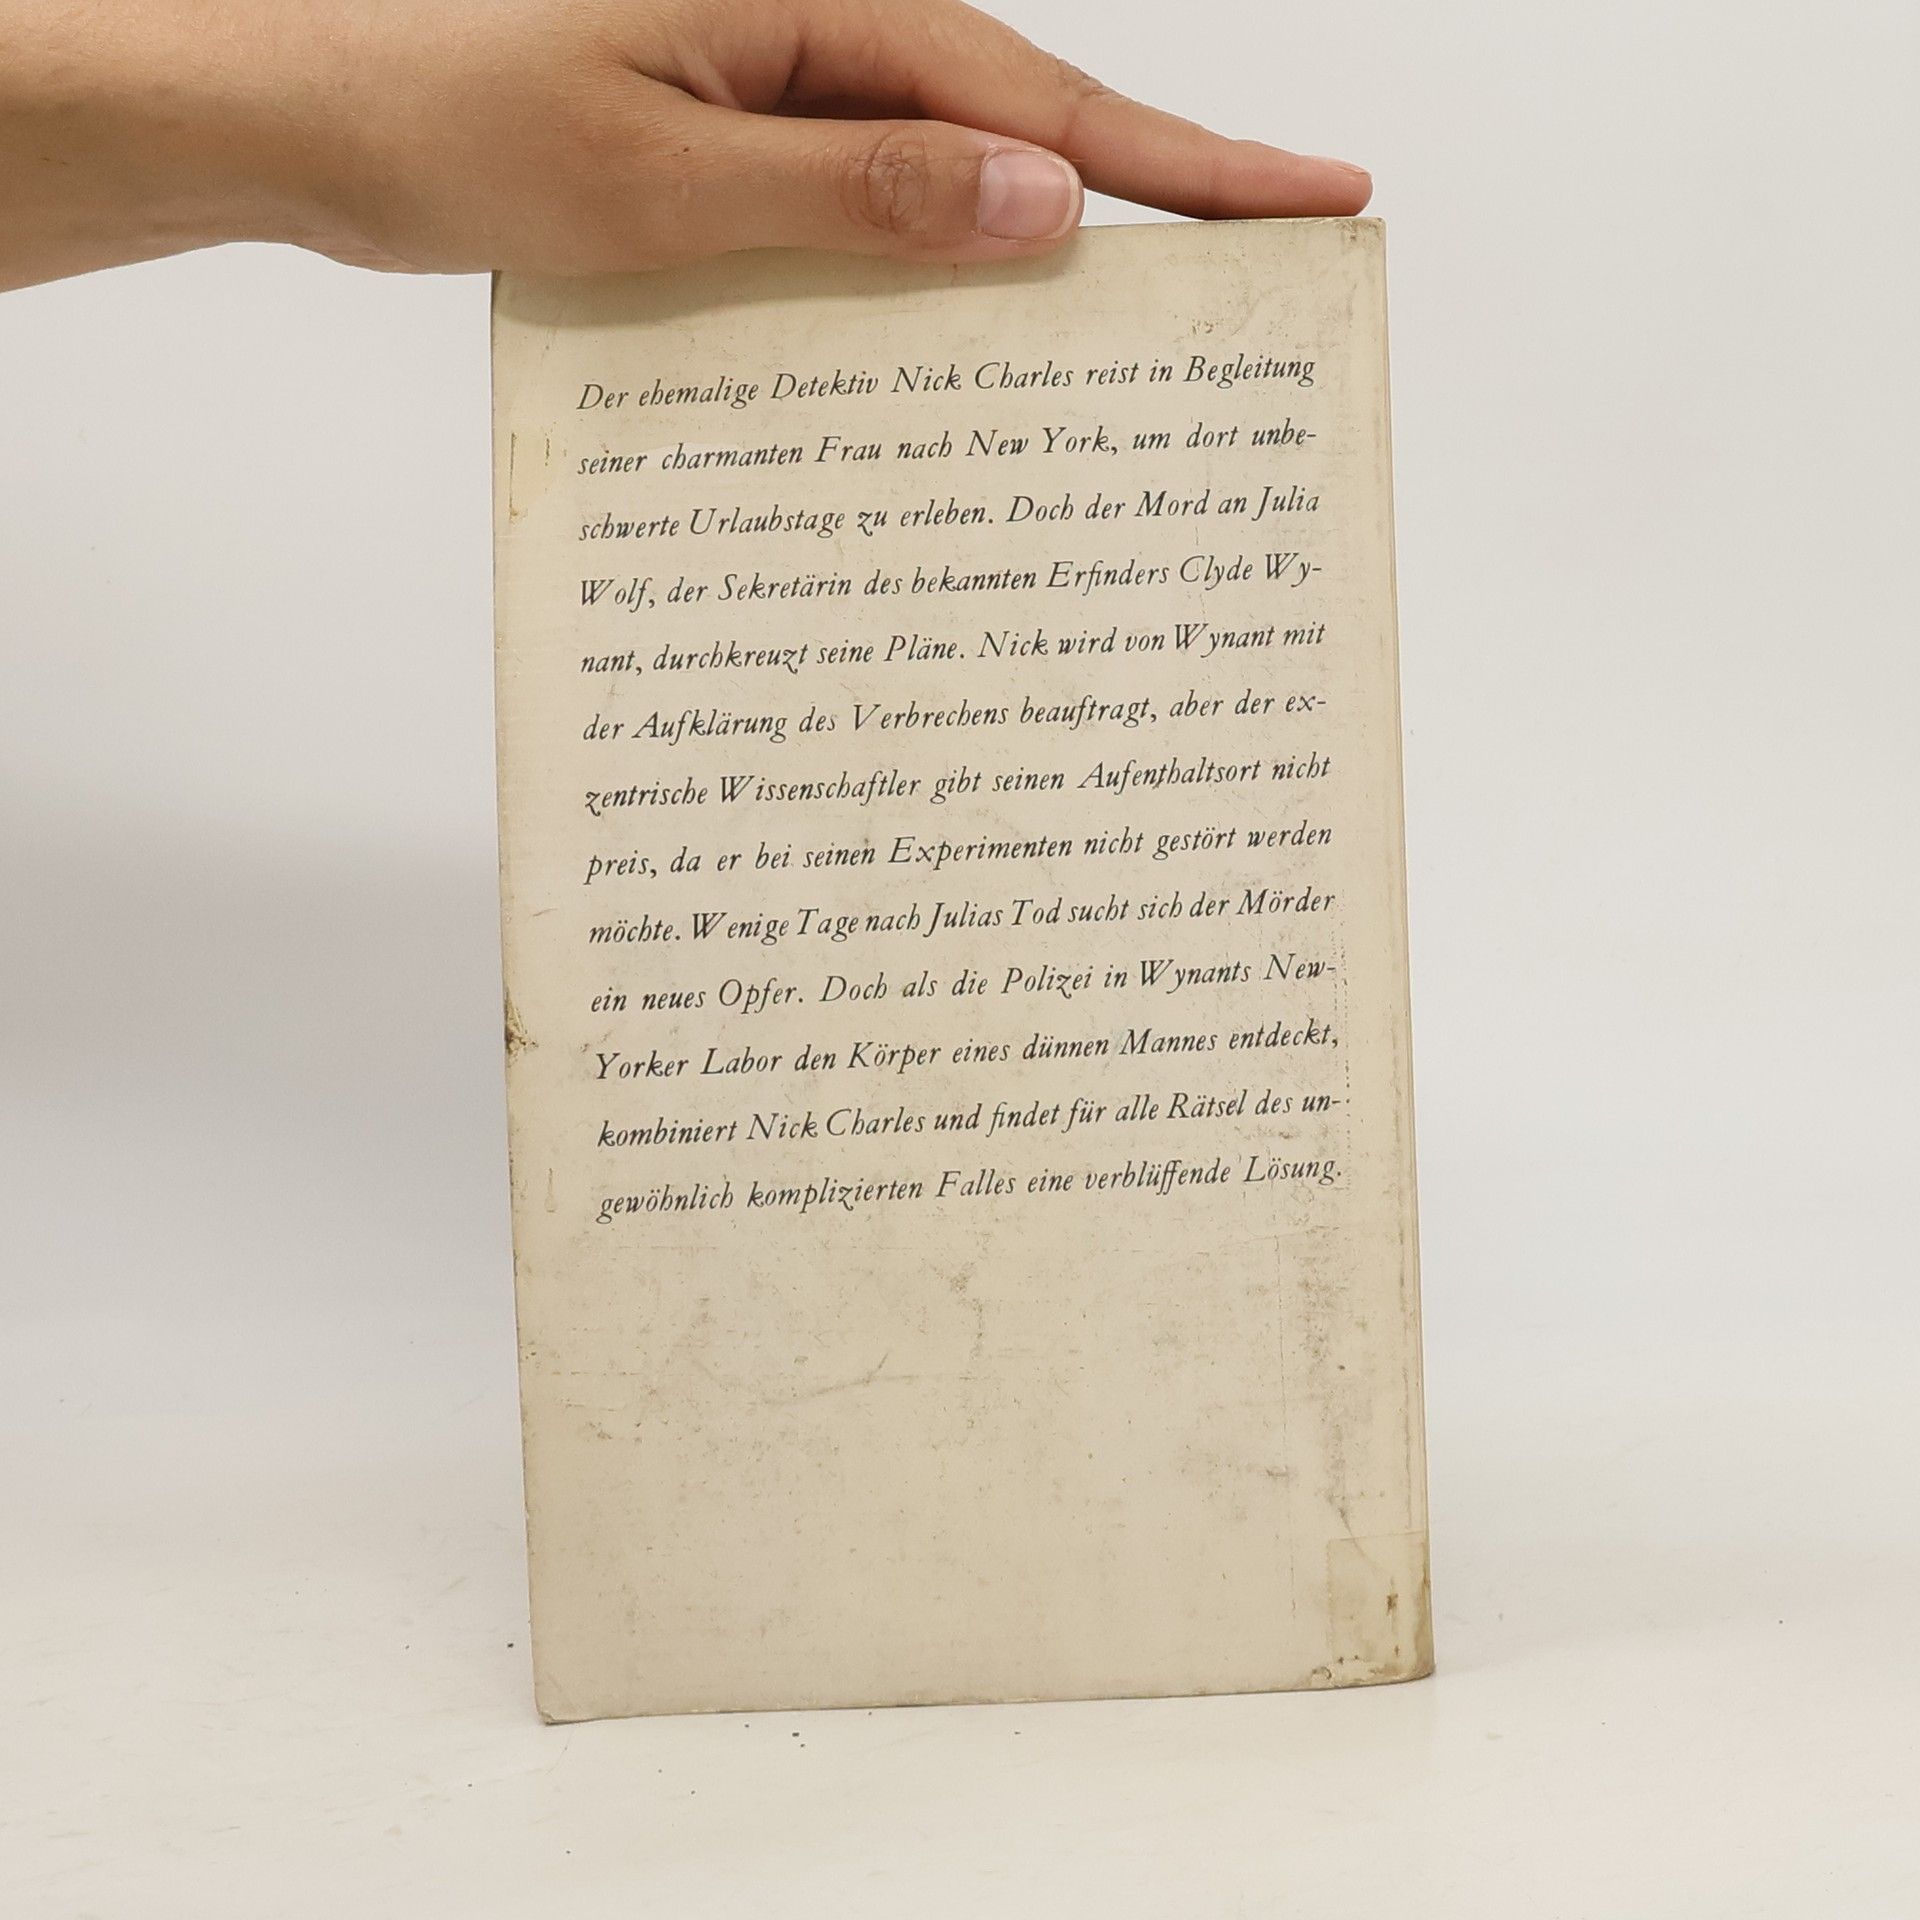 Der ehemalige Detektiv Nick Charles reist in Begleitung
seiner charmanten Frau nach New York, um dort unbe-
schwerte Urlaubstage zu erleben. Doch der Mord an Julia
Wolf, der Sekretärin des bekannten Erfinders Clyde Wy-
nant, durchkreuzt seine Pläne. Nick wird von Wynant mit
der Aufklärung des Verbrechens beauftragt, aber der ex-
zentrische Wissenschaftler gibt seinen Aufenthaltsort nicht
preis, da er bei seinen Experimenten nicht gestört werden
möchte. Wenige Tage nach Julias Tod sucht sich der Mörder
ein neues Opfer. Doch als die Polizei in Wynants New-
Yorker Labor den Körper eines dünnen Mannes entdeckt,
kombiniert Nick Charles und findet für alle Rätsel des un-
gewöhnlich komplizierten Falles eine verblüffende Lösung.